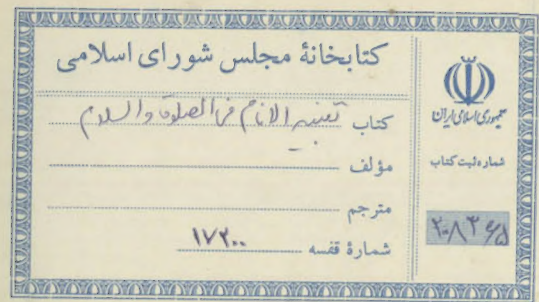 کتابخانهٔ مجلس شورای اسلامی
کتاب تنبیه الانام فی الصلوة والسلام
مؤلف
مترجم
شمارهٔ قفسه ۱۷۲۰۰
جمهوری اسلامی ایران
شماره ثبت کتاب
۲۰۸۴۶۵